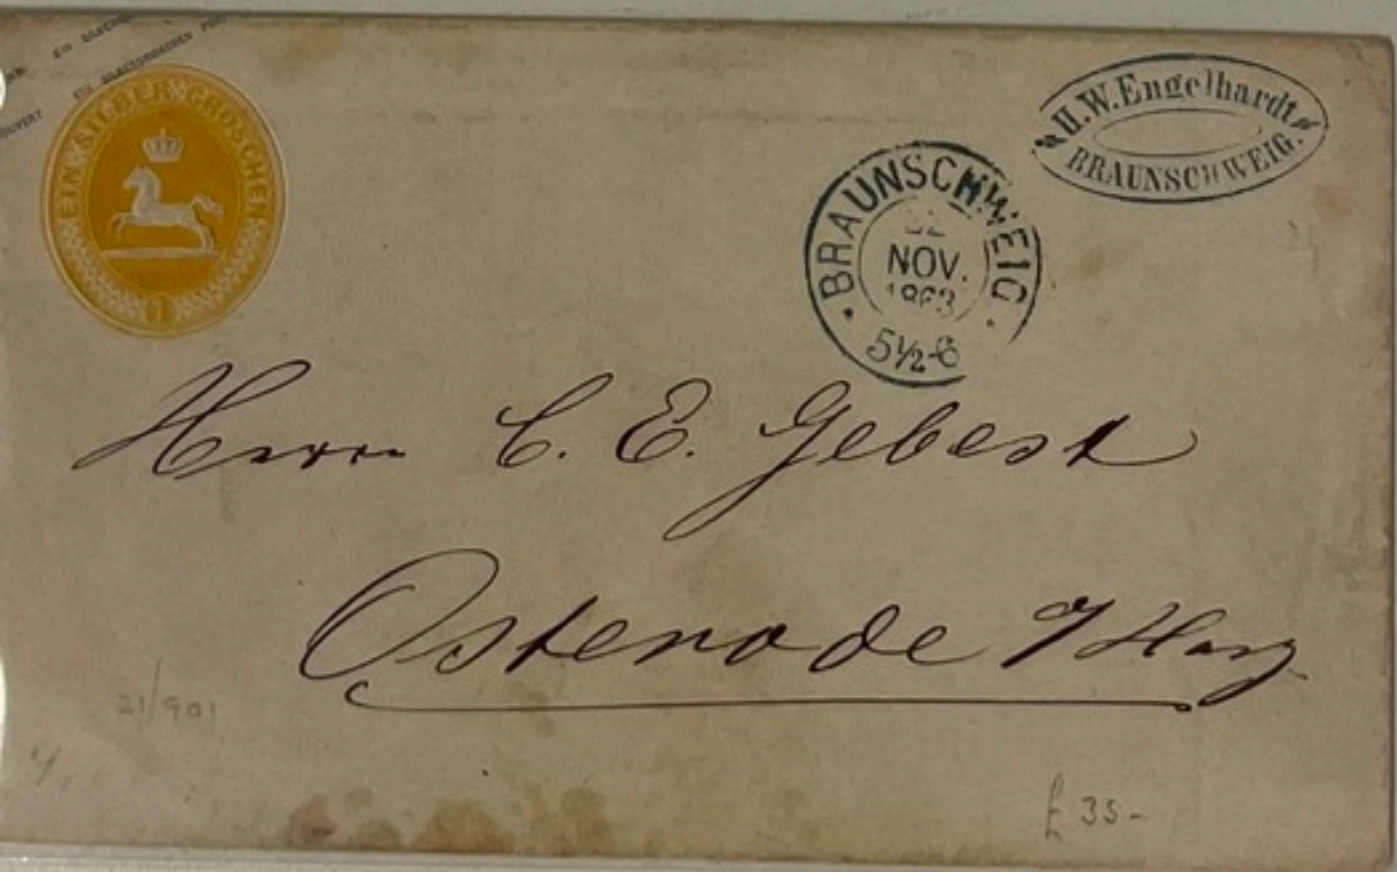 EIN SILBERGROSCHEN
EIN SILBER GROSCHEN
1
H.W.Engelhardt
BRAUNSCHWEIG.
BRAUNSCHWEIG
NOV.
1863
5½-6
Herrn C. E. Gebest
Osterode a/Harz
21/901
£ 35-